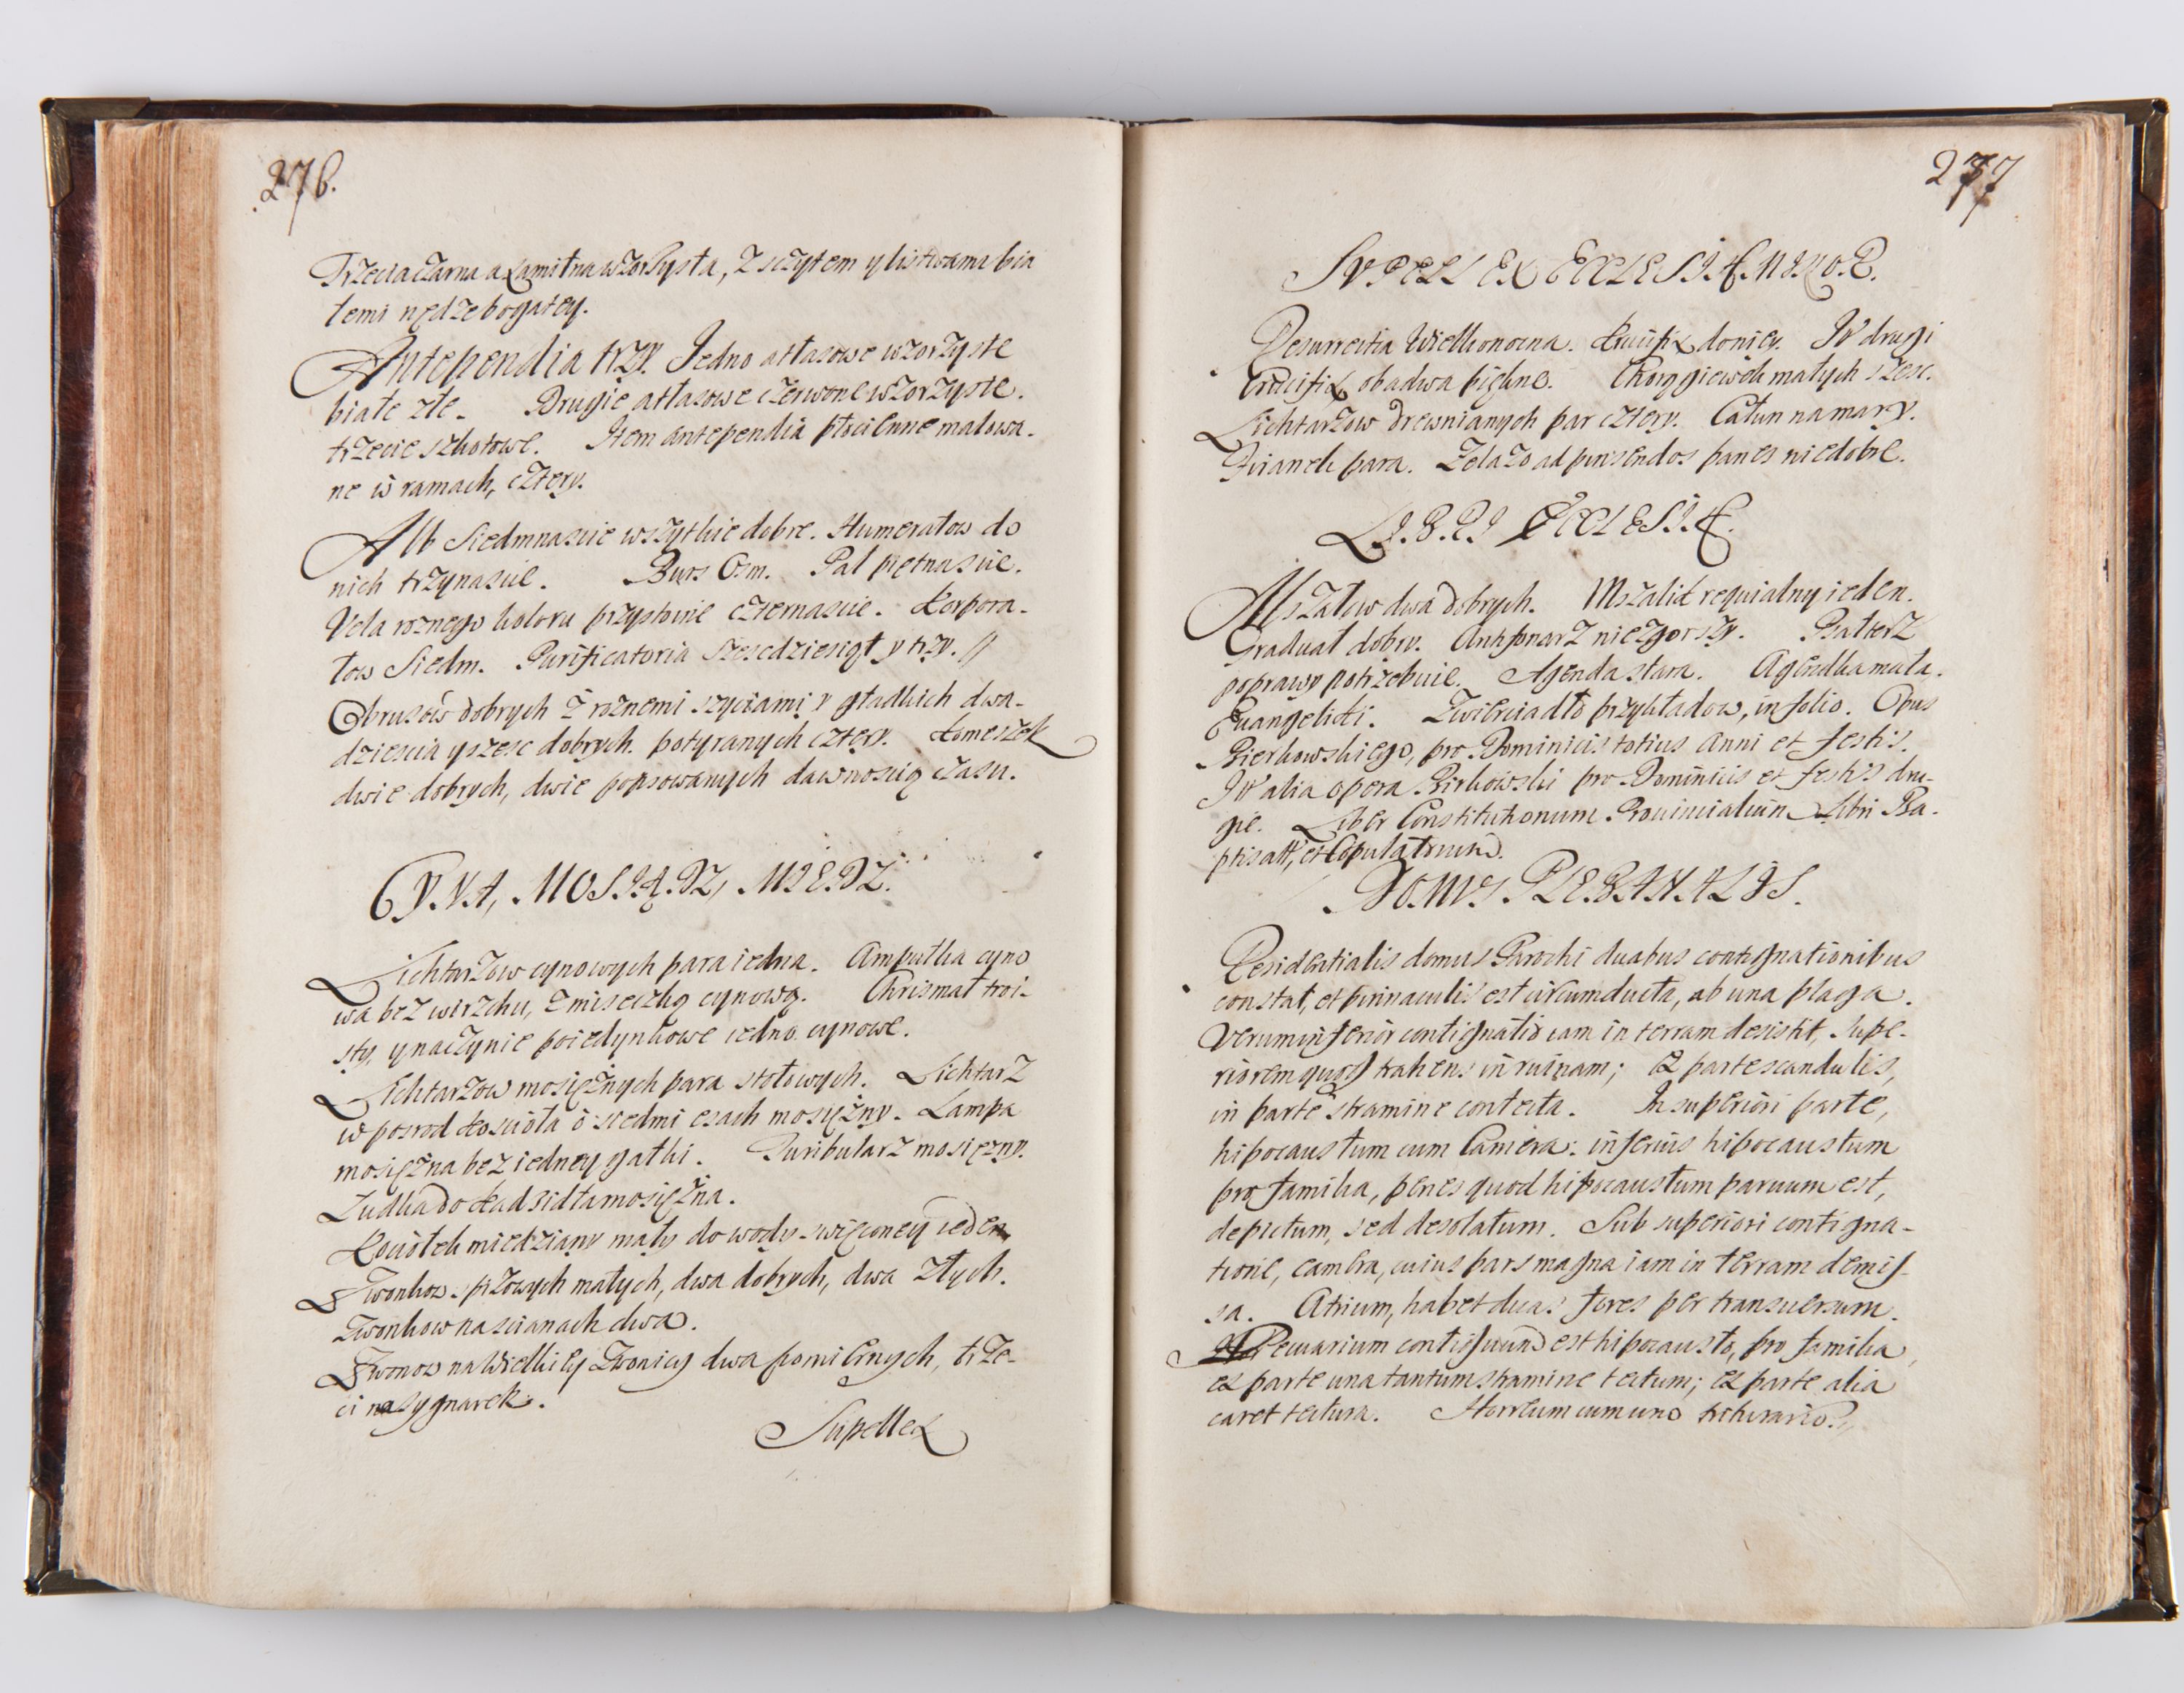 276.
Trzecia czarna axamitna wzorzysta, z sczytem y listwami bia
łemi nędze bogatey.
Antependia trzy. Jedno atłasowe wzorzyste
białe złe. Drugie atłasowe czerwone wzorzyste.
trzecie szkotowe. Item antependia płocienne malowa-
ne w ramach, cztery.
Alb siedmnascie wszytkie dobre. Humerałow do
nich trzynascie. Burs Osm. Pal piętnascie.
Vela roznego koloru przystoinie czternascie. Korpora-
łow Siedm. Purificatoria szescdziesiąt y trzy.
Obrusów dobrych z roznemi szyciami y gładkich dwa-
dziescia y szesc dobrych. potyranych cztery. Komeszek
dwie dobrych, dwie popsowanych dawnoscią czasu.
CYNA, MOSIĄDZ, MIEDZ.
Lichtarzow cynowych para iedna. Ampułka cyno
wa bez wirzchu, z miseczką cynową. Chrismał troi-
sty, y naczynie poiedynkowe iedno cynowe.
Lichtarzow mosiężnych para stołowych. Lichtarz
w posrod koscioła o siedmi esach mosiężny. Lampa
mosiężna bez iedney gałki. Turibularz mosiężny.
Łudka do kadzidła mosiężna.
Kociołek miedziany mały do wody swięconey ieden
Zwonkow małych, dwa dobrych, dwa złych.
Zwonkow na scianach dwa.
Zwonow na wielkiey Zwonicy dwa pomiernych, trze-
ci na sygnarek.
Supellex
277
SUPELLEX ECCLESIÆ MINOR.
Resurrectia Wielkonocna. Krucifix do niey. It drugi
Crucifix obadwa piękne. Chorągiewek małych szesc.
Lichtarzow drewnianych par cztery. Całun na mary.
Firanek para. Zelazo ad pinsendos panes niedobre.
LIBRI ECCLESIÆ.
Mszałow dwa dobrych. Mszalik requialny ieden.
Graduał dobry. Antyfonarz niezgorszy. Psałterz
poprawy potrzebuie. Agenda stara. Agendka mała.
Euangeliki. Zwierciadło przykładow, in folio. Opus
Bierkowskiego, pro Dominicis totius Anni et festis.
It alia opera Birkowski pro Dominicis et festis dru-
gie. Liber Constitutionum Prouincialium Libri Ba-
ptisat, et Copulatorum.
DOMUS PLEBANALIS.
Residentialis domus Parochi duabus contignationibus
constat, et pinnaculis est circumducta, ab una plaga.
Verum inferior contignatio iam in terram desistit, supe-
riorem quoq trahens in ruinam; Ex parte scandulis,
in parte stramine contecta. In superiori parte,
hipocaustum cum Camera: inferius hipocaustum
pro familia, penes quod hipocaustum paruum est,
depictum, sed desolatum. Sub superiori contigna-
tione, camera, cuius pars magna iam in terram demis-
sa. Atrium, habet duas fores per transuersum.
Pecuarium contiguum est hipocausto, pro familia,
ex parte una tantum stramine tectum; ex parte alia
caret tectura. Horreum cum uno triturario.